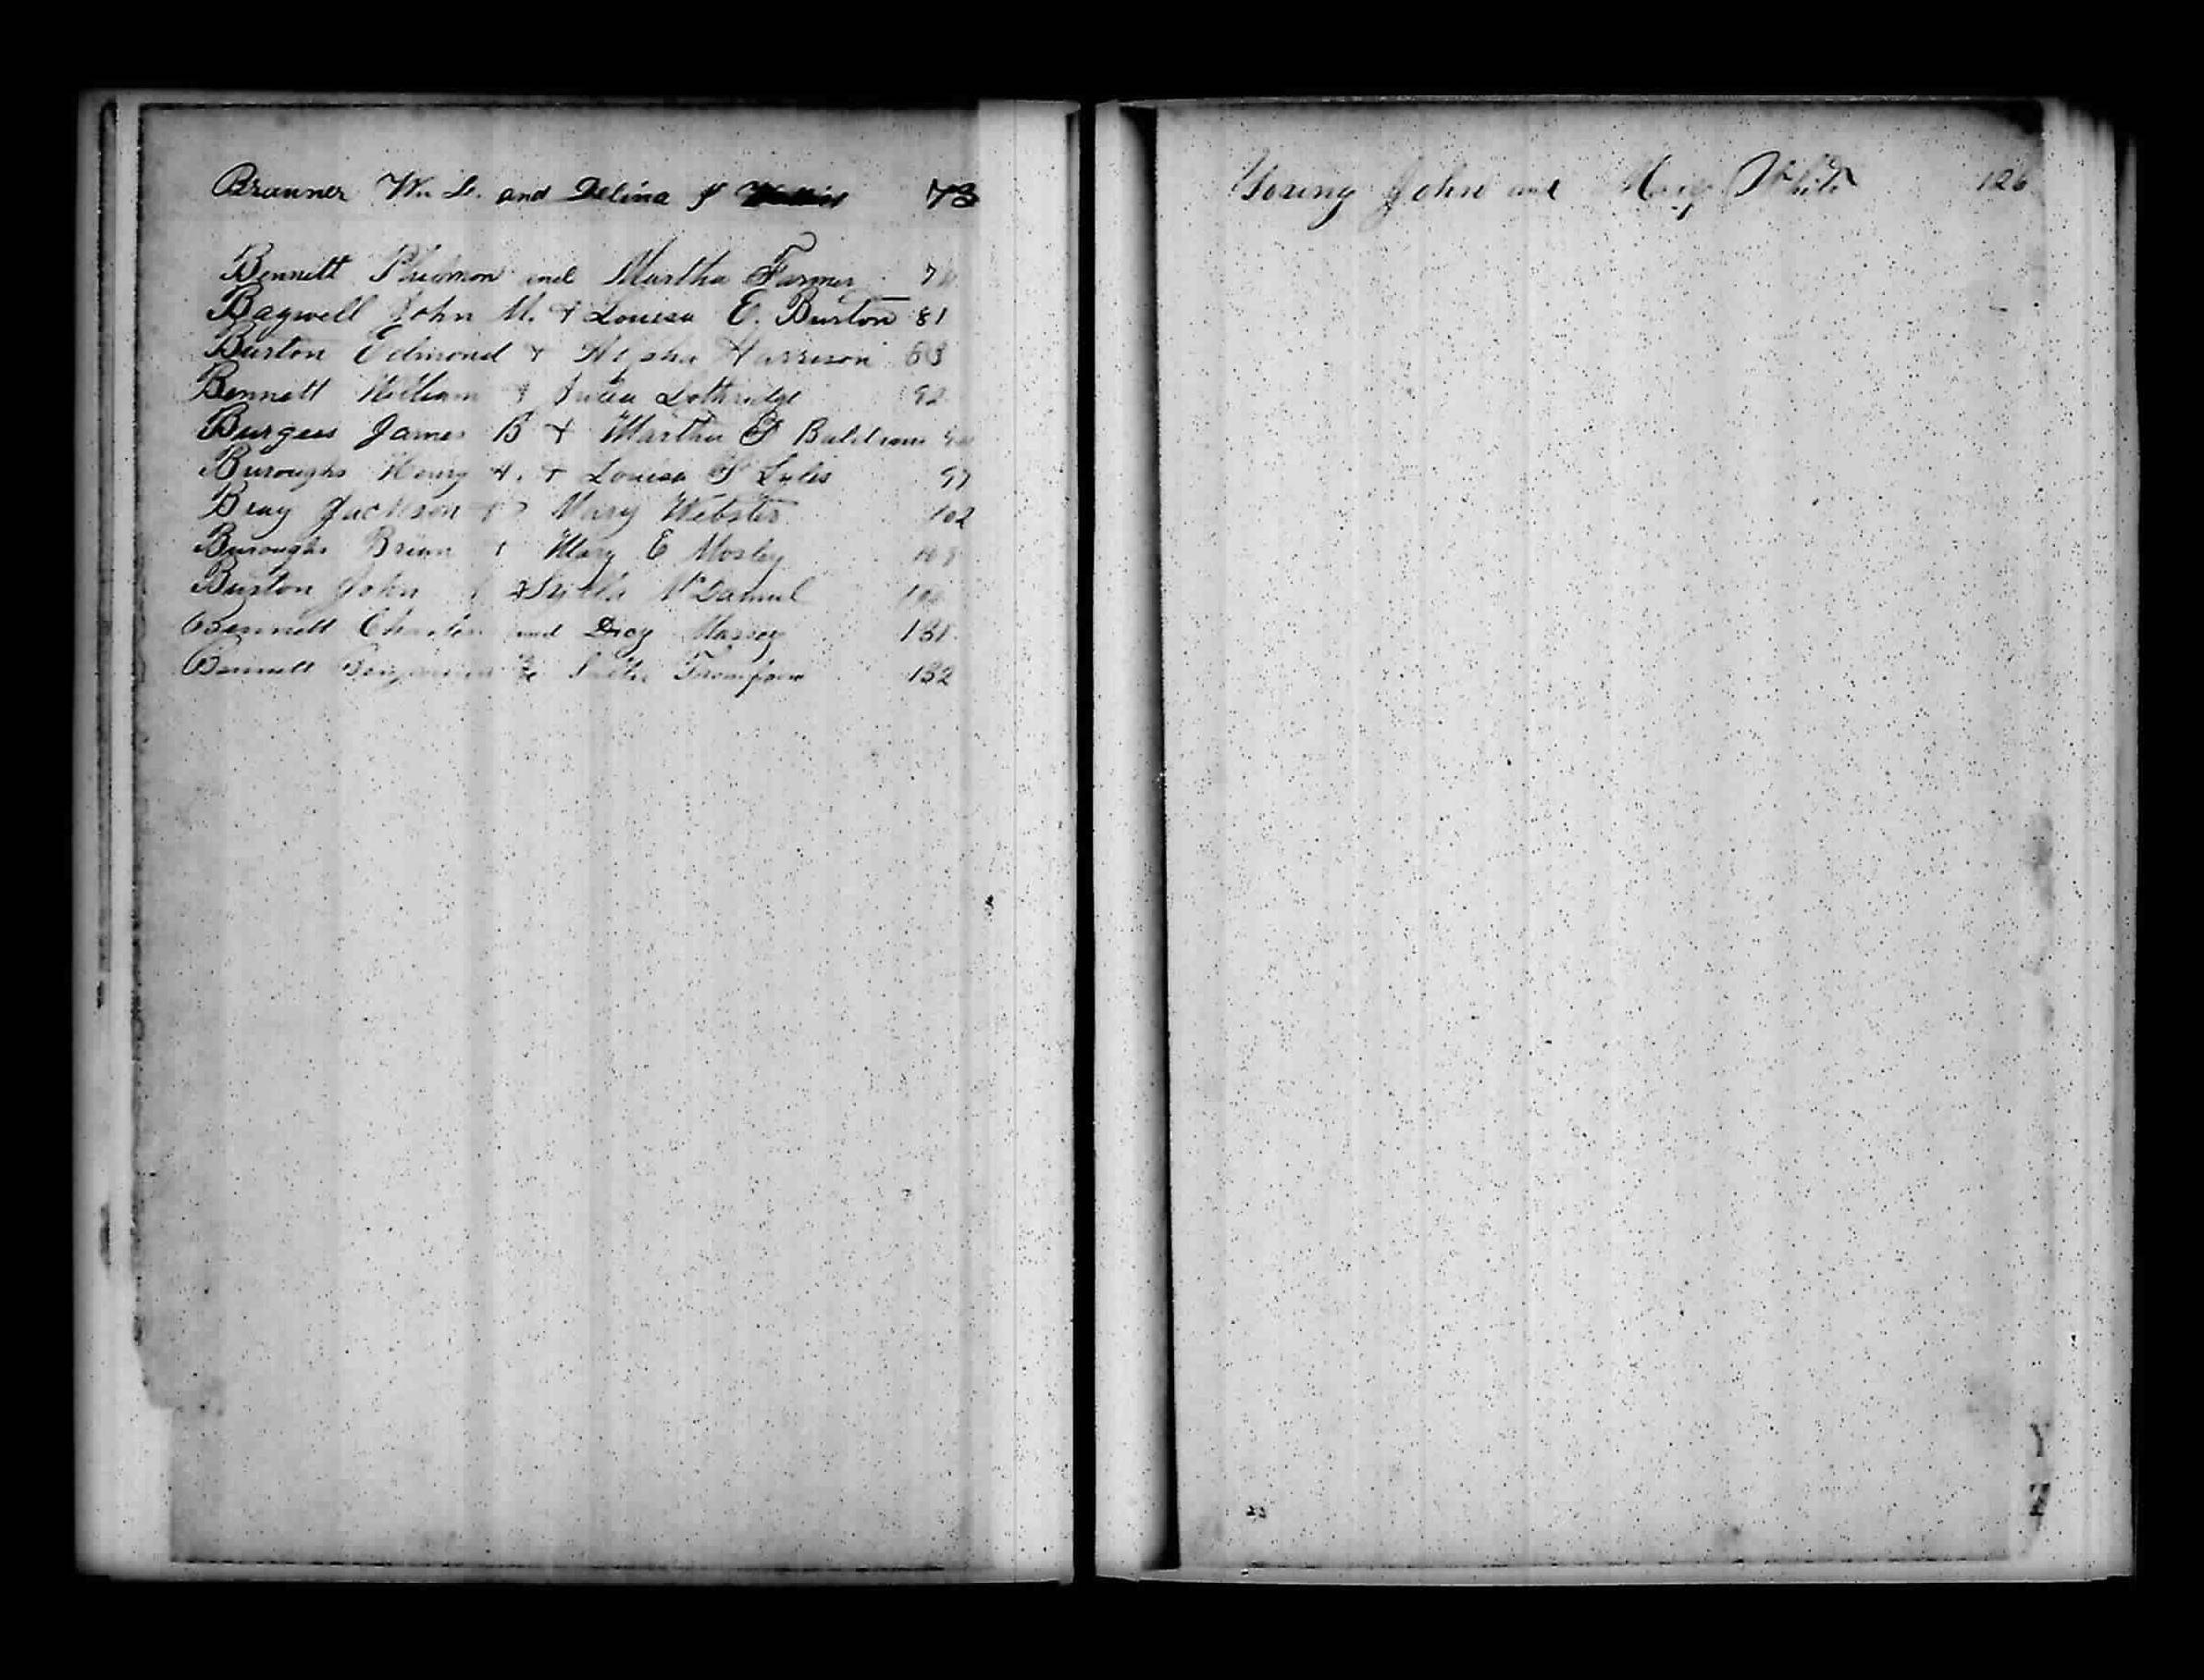 Branner Wm L. and Delina J 73
Bennett Philemon and Martha Farmer
Bagwell John M. & Louisa E. Burton 81
Burton Edmond & Harrison
Bennett William & Julia Lothridge 92
Burgess James B & Martha
Buroughs Henry H. & Louisa Lyles 97
Bray Jackson & Mary Webster 102
Buroughs & Mary E Mosley
Burton John & McDaniel
Bennett Charles and Dicy Massey 131
Bennett Benjamin & Thompson 132
Young John and Mary White 126
Y
Z